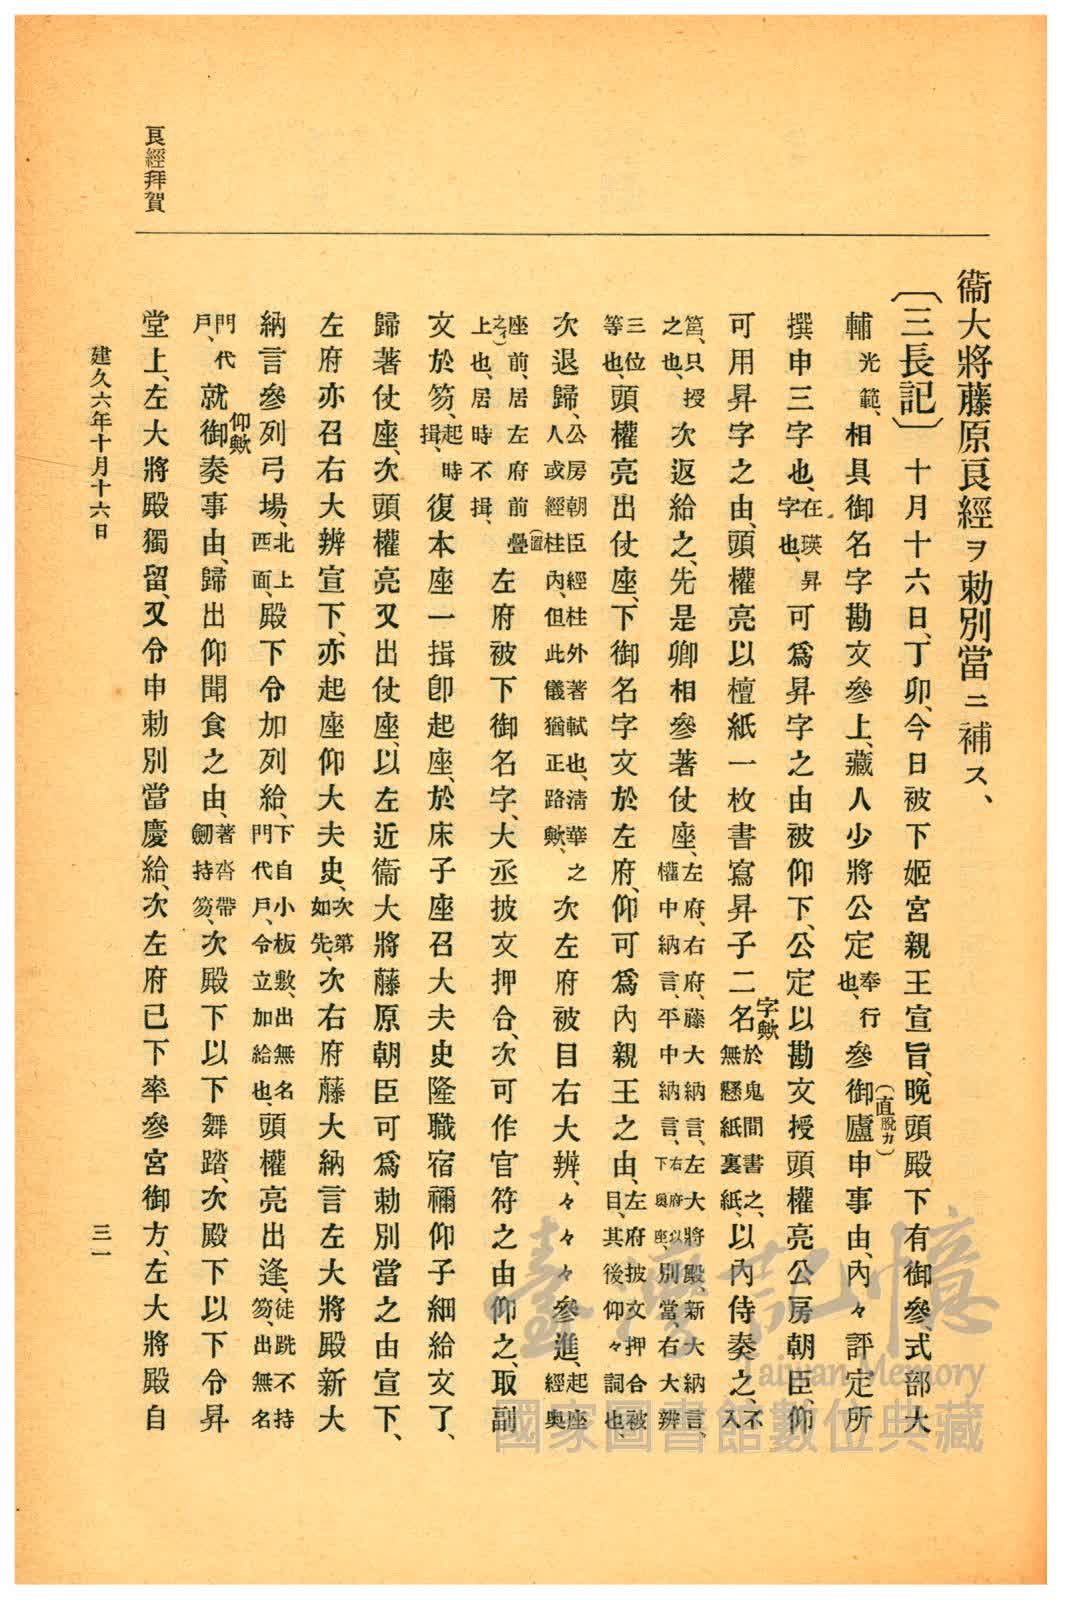 衞大將藤原良經ヲ勅別當ニ補ス、
〔三長記〕十月十六日、丁卯、今日被下姬宮親王宣旨、晩頭殿下有御參、式部大
輔光範、相具御名字勘文參上、藏人少將公定奉行也、參御廬(直脱カ)申事由、內々評定所
撰申三字也、在瑛昇字也、可爲昇字之由被仰下、公定以勘文授頭權亮公房朝臣、仰
可用昇字之由、頭權亮以檀紙一枚書寫昇子二名字歟於鬼間書之、無懸紙裏紙、以內侍奏之、不入
筥、只授之也、次返給之、先是卿相參著仗座、左府、右府、藤大納言、左大將殿、新大納言、權中納言、平中納言、右府以下奧座、別當、右大辨
三位等也、頭權亮出仗座、下御名字文於左府、仰可爲內親王之由、左府披文押合被目、其後仰々詞也、
次退歸、公房朝臣經柱外著軾也、淸華之人或經柱(置)內、但此儀猶正路歟、次左府被目右大辨、々々々參進、起座經奧
座前、居左府前疊(之イ)上也、居時不揖、左府被下御名字、大丞披文押合、次可作官符之由仰之、取副
文於笏、起時揖、復本座一揖卽起座、於床子座召大夫史隆職宿禰仰子細給文了、
歸著仗座、次頭權亮又出仗座、以左近衞大將藤原朝臣可爲勅別當之由宣下、
左府亦召右大辨宣下、亦起座仰大夫史、次第如先、次右府藤大納言左大將殿新大
納言參列弓場、北上西面、殿下令加列給、下自小板敷、出無名門代戶、令立加給也、頭權亮出逢、徒跣不持笏、出無名
門代戶、就御仰歟奏事由、歸出仰聞食之由、著沓帶劒持笏、次殿下以下舞踏、次殿下以下令昇
堂上、左大將殿獨留、又令申勅別當慶給、次左府已下率參宮御方、左大將殿自
良經拜賀
建久六年十月十六日
三一
臺灣記憶
Taiwan Memory
國家圖書館數位典藏